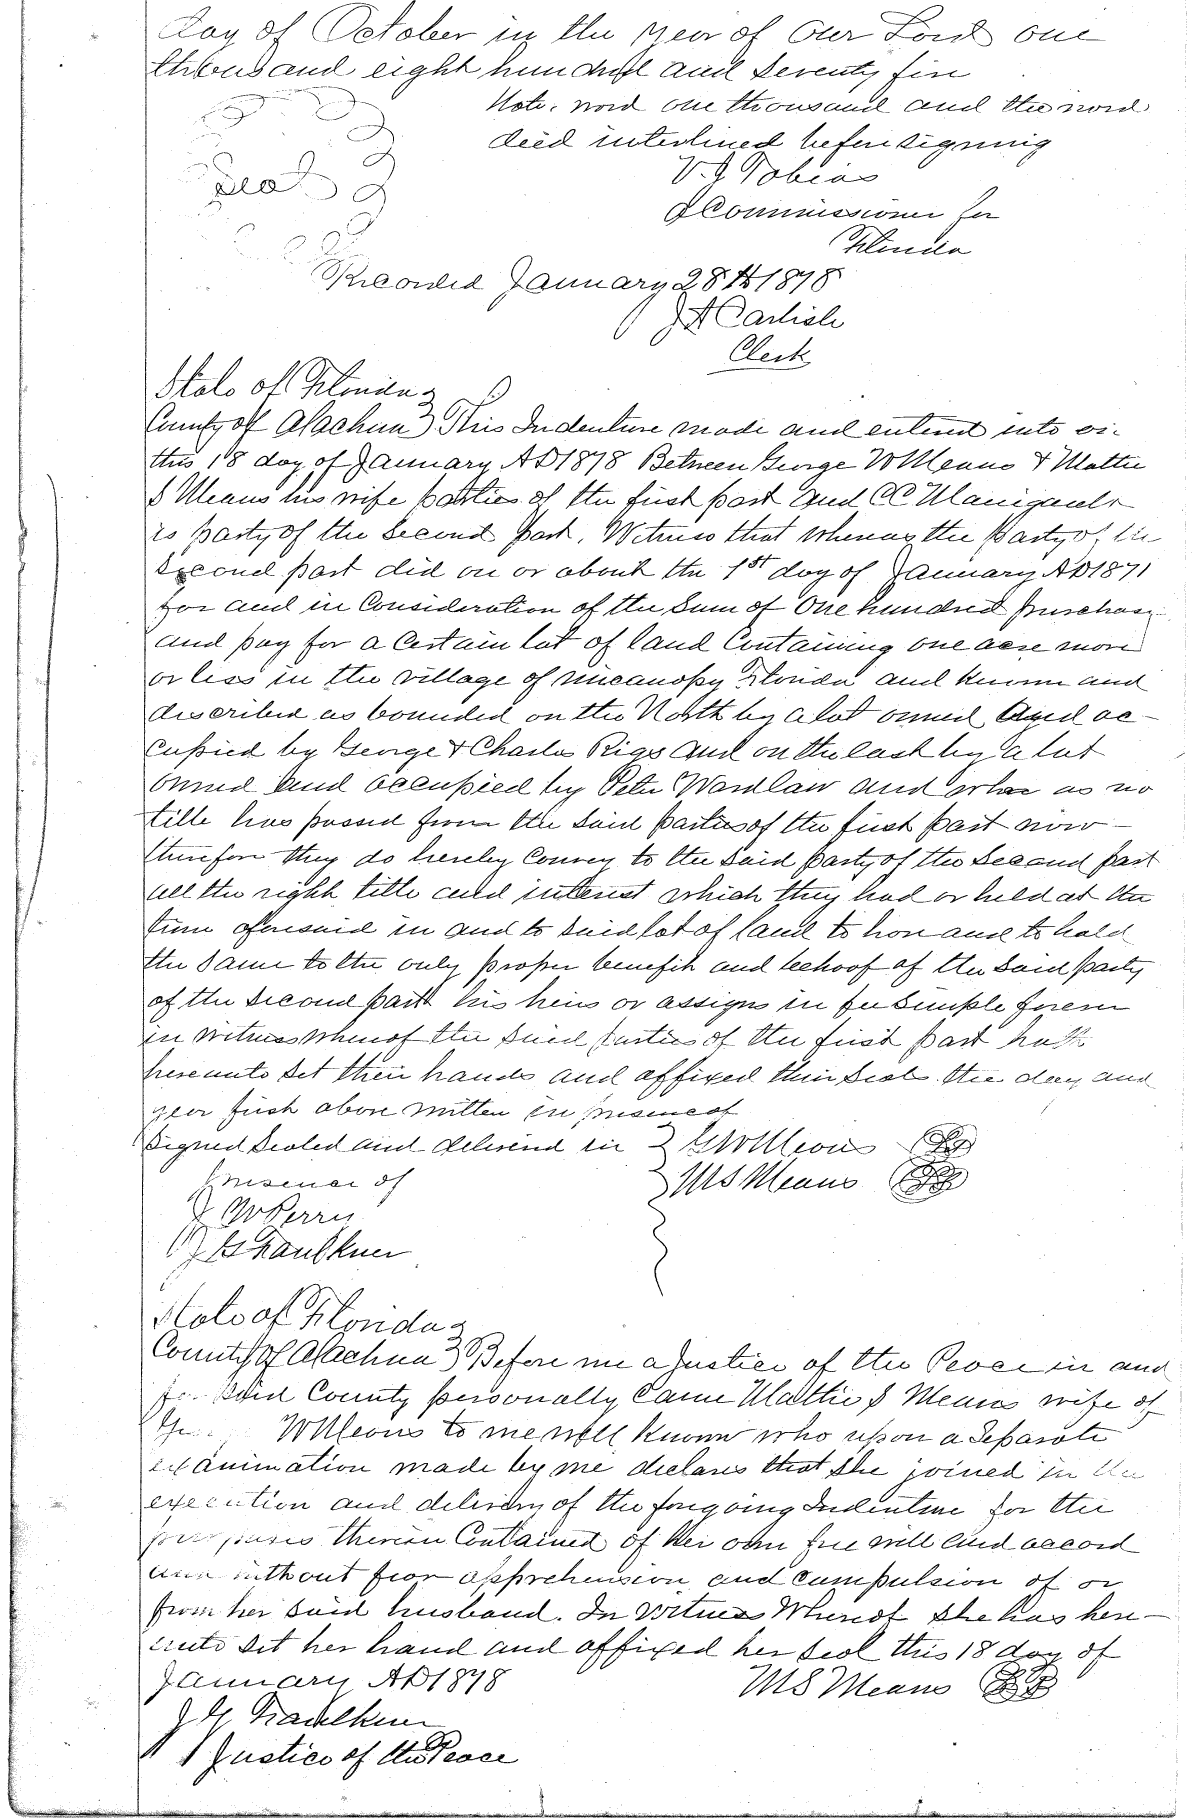 day of October in the year of Our Lord one
thousand eight hundred and Seventy five
Note. word one thousand and the word
deed interlined before signing
V. J. Tobias
Seal
Commissioner for
Florida
Recorded January 28th 1878
J A Carlisle
Clerk
State of Florida
County of Alachua } This Indenture made and entered into on
this 18 day of January AD 1878 Between George W Means & Mattie
S Means his wife parties of the first part and C C Manigault
is party of the Second part, Witness that whereas the Party of the
Second part did on or about the 1st day of January AD 1871
for and in Consideration of the Sum of One hundred purchase
and pay for a Certain lot of land Containing one acre more
or less in the village of Micanopy Florida and known and
discribed as bounded on the North by a lot owned and oc-
cupied by George & Charles Rigs and on the East by a lot
owned and occupied by Peter Wardlaw and whereas no
title has passed from the Said parties of the first part now -
therefore they do hereby Convey to the Said party of the Second part
all the right title and interest which they had or held at the
time aforesaid in and to Said lot of land to have and to hold
the Same to the only proper benefit and behoof of the Said party
of the Second part his heirs or assigns in fee Simple forever
in Witness Whereof the Said parties of the first part hath
hereunto Set their hands and affixed their Seals the day and
year first above written in presence of
Signed Sealed and delivered in } G W Means
presence of } M S Means
J W Perry
J H Faulkner
State of Florida
County of Alachua } Before me a Justice of the Peace in and
for Said County personally Came Mattie S Means wife of
W Means to me well known who upon a Separate
examination made by me declares that She joined in the
execution and delivery of the forgoing Indenture for the
purposes therein Contained of her own free will and accord
and without fear apprehension and Compulsion of or
from her Said husband. In Witness Whereof She has here-
unto Set her hand and affixed her Seal this 18 day of
January AD 1878 M S Means
J H Faulkner
Justice of the Peace